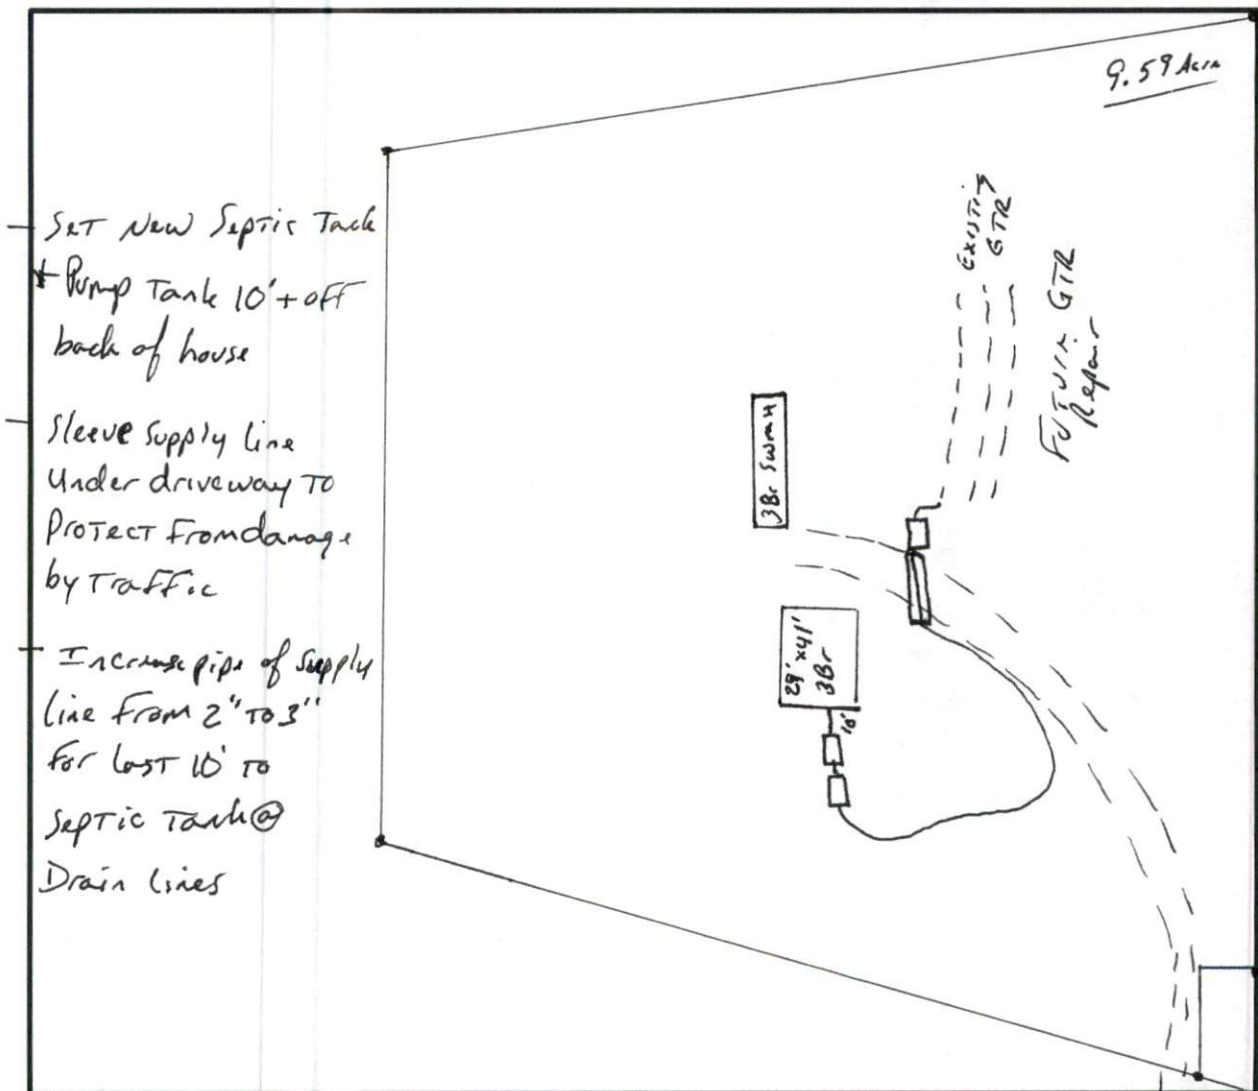 9.59 Acre
- Set New Septic Tank
+ Pump Tank 10'+ off
back of house
- Sleeve supply line
Under driveway To
Protect From damage
by Traffic
- Increase pipe of supply
line From 2" To 3"
for last 10' to
Septic Tank @
Drain lines
Existing
GTR
Future GTR
Repair
3Br SWMH
29' x 41'
3Br
10'